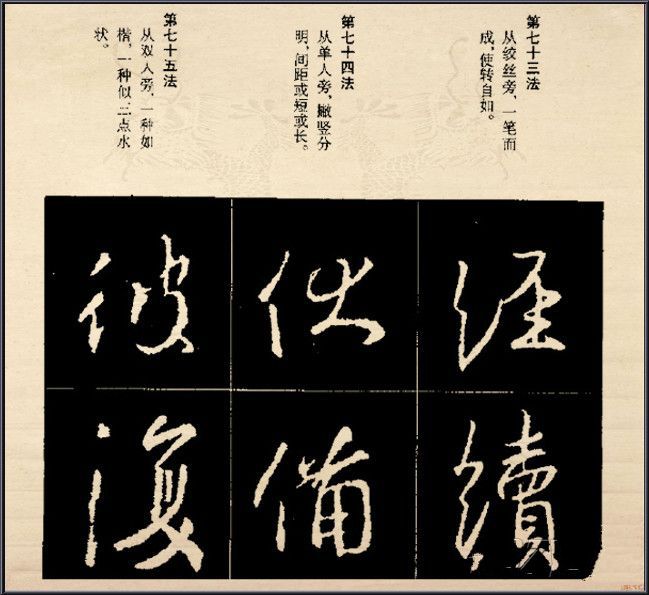 第七十三法
从绞丝旁,一笔而
成,使转自如。
經
續
第七十四法
从单人旁,撇竖分
明,间距或短或长。
伏
備
第七十五法
从双人旁,一种如
楷,一种似三点水
状。
彼
復